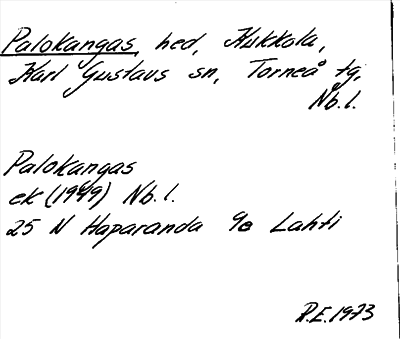 Palokangas, hed, Kukkola,
Karl Gustavs sn, Torneå tg,
Nb.l.
Palokangas
ek (1949) Nb.l.
25 N Haparanda 9e Lahti
R.E. 1973